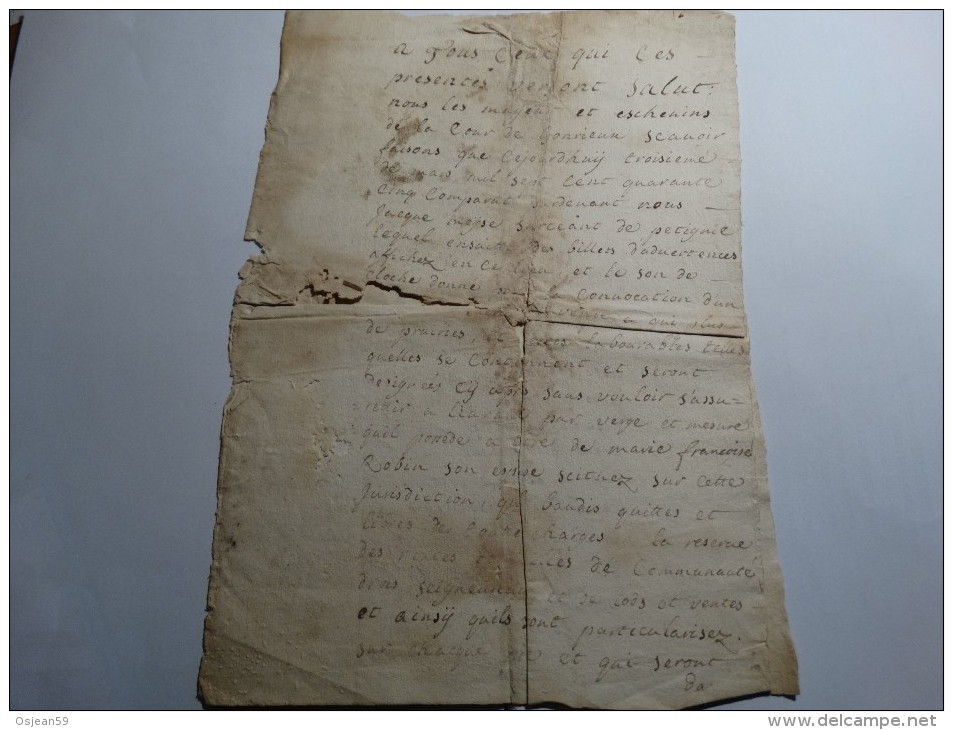 a Tous Ceux qui Ces
presentes veront Salut:
nous les mayeur et eschevins
de la Cour de gonrieux Scavoir
faisons que Cejourdhuÿ troisieme
de mars mil sept Cent quarante
Cinq Comparut pardevant nous
Jacque sartiant de petignie
lequel ensuite des billets d'advertences
affichez en Ce lieu, et le son de
Cloche donne la Convocation d'un
a qui plus
de prairies, et terres labourables telles
quelles se Contiennent et seront
designées Cÿ apres sans vouloir s'assu-
par verge et mesure
quil possede a titre de marie françoise
Robin son espouse scituez sur Cette
Jurisdiction, quittes et
libres de toutte charges la reserve
des tailles de Communauté
droits seigneureaux et de lods et ventes
et ainsÿ quils sont particularisez
sur chacque et qui seront
da
Osjean59
delcampe.net